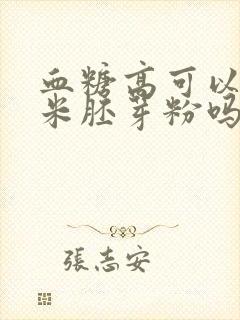 血糖高可以
米胚芽粉吗
張志安